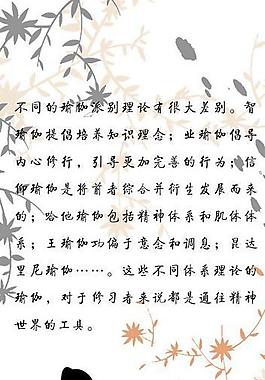 不同的瑜伽派别理论有很大差别。智
瑜伽提倡培养知识理念；业瑜伽倡导
内心修行，引导更加完善的行为；信
仰瑜伽是将前者综合并衍生发展而来
的；哈他瑜伽包括精神体系和肌体体
系；王瑜伽功偏于意念和调息；昆达
里尼瑜伽……。这些不同体系理论的
瑜伽，对于修习者来说都是通往精神
世界的工具。